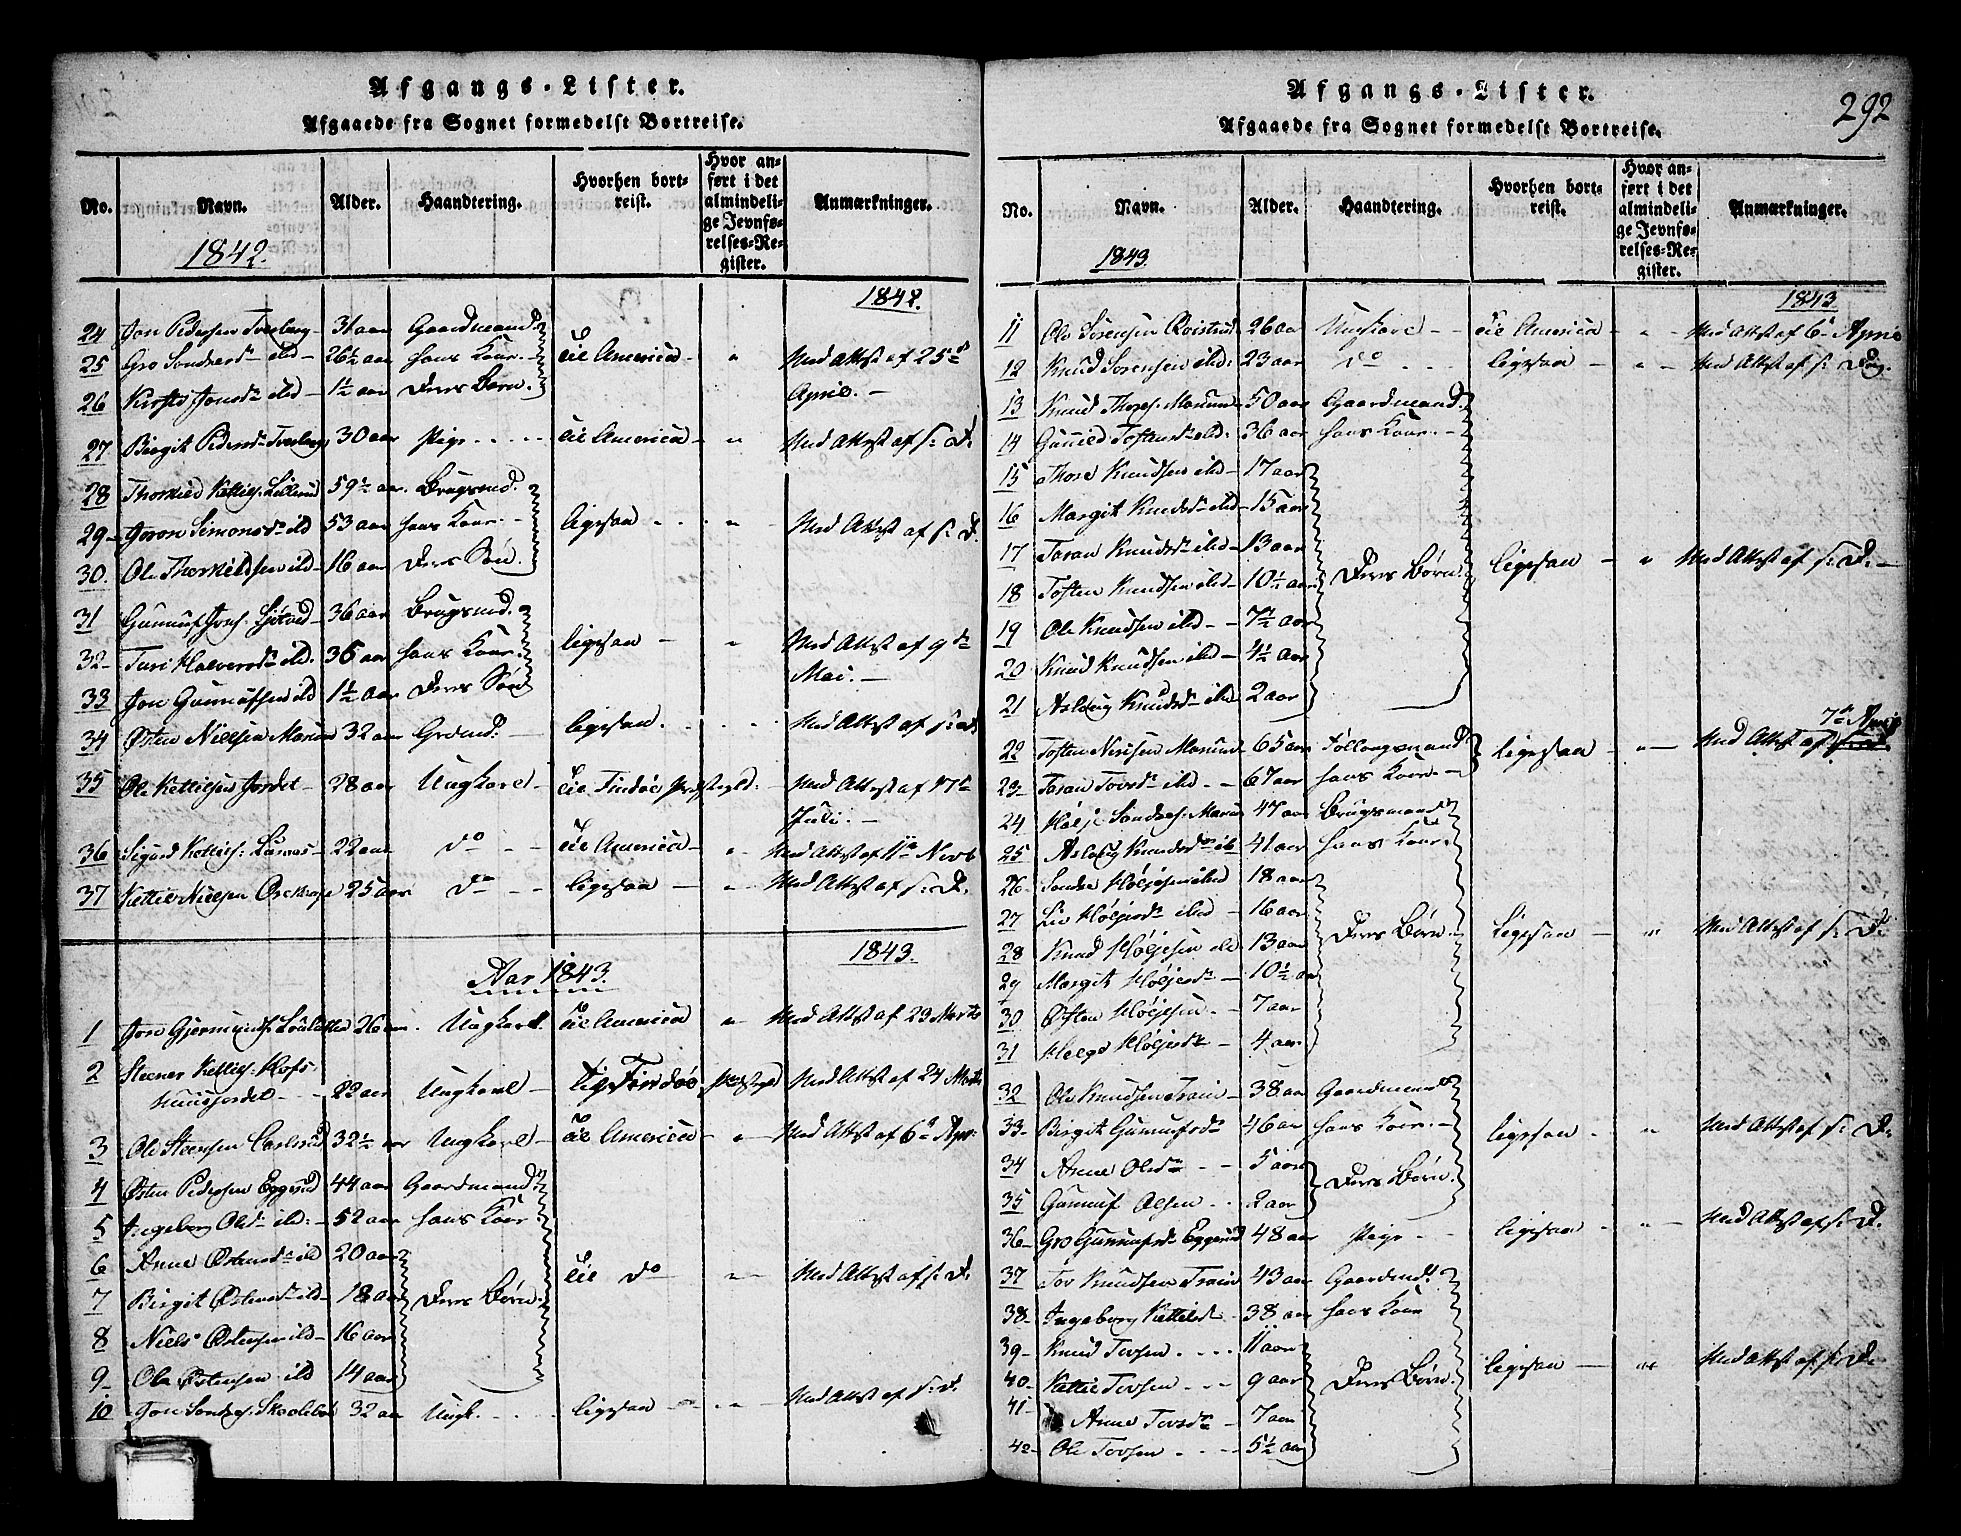 Afgangs-Lister.
Afgaaede fra Sognet formedelst Bortreise.
No. Navn. Alder. Haandtering. Hvorhen bortreist. Hvor anført i det almindelige Jevnførelses-Register. Anmærkninger.
1842.
1842.
24 Jon Pedersen Tveberg 31 aar Gaardmand
25 Gro Sondresd ibd 26½ aar hans Kone til America " Med Attest af 25de
26 Kirsti Jonsd ibd 1½ aar Deres Børn April.
27 Birgit Pedersd Tveberg 30 aar Pige til America " Med Attest af s: D.
28 Thorkild Kettils: 59½ aar Brugsmd.
29 Joron Simonsd ibd 53 aar hans Kone ligesaa " Med Attest af s: D.
30. Ole Thorkildsen ibd 16 aar Deres Søn.
31 Gunnuf Jons: 36 aar Brugsmd.
32 Turi Halvorsd ibd. 36 aar hans Kone ligesaa " Med Attest af 9de
33 Jon Gunnufsen ibd 1½ aar Deres Søn Mai.
34 Østen Nielsen Marum 32 aar ligesaa " Med Attest af s: D
35 Ole Kettilsen Jordet 28 aar Ungkarl til Tindøe Præstegld: Med Attest af 17de
Juli.
36 Sigurd Kettils: 22 aar do til America " Med Attest af 11te Novb
37 Kettil Nielsen 25 aar do ligesaa " Med Attest af s: D.
1843.
Aar 1843.
1 Jon Gjermunds: 26 aar Ungkarl til America " Med Attest af 23 Marts
2 Steener Kettils: Hofs
Huusjordet 22 aar Ungkarl til Tindøe Præstegld Med Attest af 24 Marts
3 Ole Steensen 32½ aar Ungkarl til America " Med Attest af 6te Apr:
4 Østen Pedersen Eggerud 44 aar Gaardmand
5 Ingeborg Olsd ibd: 52 aar hans Kone
6 Anne Østensd ibd 20 aar
7 Birgit Østensd ibd 18 aar Deres Børn. til do " Med Attest af s: D.
8 Niels Østensen ibd 16 aar
9 Ole Østensen ibd 14 aar
10 Jon Sondres: 32 aar Ungk. ligesaa " Med Attest af s: D.
292
Afgangs-Lister.
Afgaaede fra Sognet formedelst Bortreise.
No. Navn. Alder. Haandtering. Hvorhen bortreist. Hvor anført i det almindelige Jevnførelses-Register. Anmærkninger.
1843.
1843.
11 Ole Sørensen 26 aar Ungkarl til America " Med Attest af 6te April
12 Knud Sørensen ibd: 23 aar do ligesaa " Med Attest af s: Dag.
13 Knud Thores: Marum 50 aar Gaardmand
14 Gunild Tostensd ibd: 36 aar hans Kone
15 Thore Knudsen ibd 17 aar
16 Margit Knudsd ibd 15 aar
17 Taran Knudsd ibd 13 aar Deres Børn. ligesaa " Med Attest af s: D.
18 Tosten Knudsen ibd 10½ aar
19 Ole Knudsen ibd 7½ aar
20 Knud Knudsen ibd 4½ aar
21 Aslaug Knudsd ibd 2 aar
7de April
22 Tosten Marum 65 aar Follaugsmand ligesaa " Med Attest af
23 Taran Tovsd ibd 67 aar hans Kone
24 Høljе Sondres: Marum 47 aar Brugsmand
25 Aslaug Knudsd ib 41 aar hans Kone
26 Sondre Høljesen ibd 18 aar
27 Liv Høljesd ibd 16 aar
28 Knud Høljesen ibd 13 aar Deres Børn. Ligesaa " Med Attest af s: D.
29 Margit Høljesd 10½ aar
30 Østen Høljesen 7 aar
31 Helge Høljesd 4 aar
32 Ole Knudsen Traim 38 aar Gaardmand
33 Birgit Gunnufsd 46 aar hans Kone ligesaa " Med Attest af s: D.
34 Anne Olsd 5 aar Deres Børn.
35 Gunnuf Olsen 2 aar
36 Gro Gunnufsd Eggerud 48 aar Pige ligesaa " Med Attest af s: D.
37 Tov Knudsen Traim 43 aar Gaardmd.
38 Ingeborg Kettilsd 38 aar hans Kone
39 Knud Tovsen 11 aar
40 Kettil Tovsen 9 aar Deres Børn. ligesaa " Med Attest af s: D.
41 Anne Tovsd 7 aar
42 Ole Tovsen 5½ aar